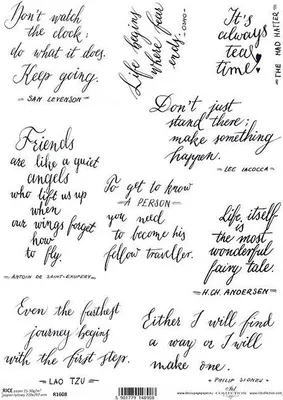 Don't watch
the clock;
do what it does.
Keep going.
SAM LEVENSON
Life begins
where fear
ends.
OSHO
It's
always
tea
time!
THE MAD HATTER
Don't just
stand there;
make something
happen.
LEE IACOCCA
Friends
are like a quiet
angels
who lift us up
when
our wings forget
how
to fly.
ANTOIN DE SAINT-EXUPERY
To get to know
A PERSON
you need
to become his
fellow traveller.
Life itself
is the most
wonderful
fairy tale.
H.CH. ANDERSEN
Even the furthest
journey begins
with the first step.
LAO TZU
Either I will find
a way or I will
make one.
PHILIP SIDNEY
RICE
R1608
5 901779 148908
COLLECTION